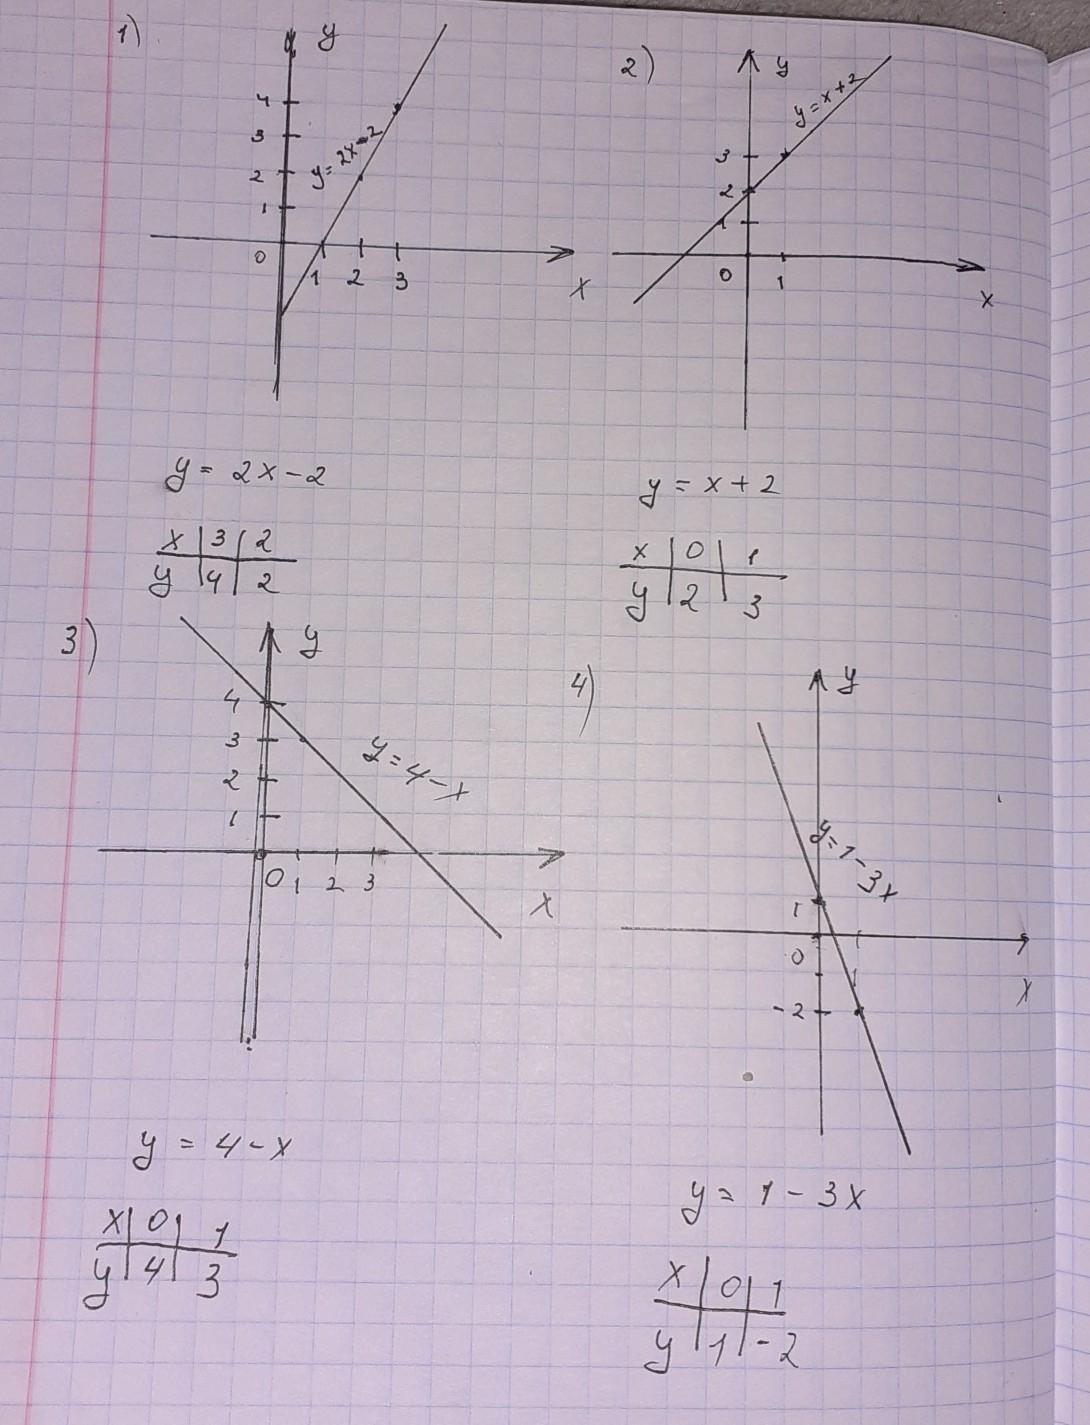 1)
y
4
3
2
1
0
1 2 3
x
y = 2x - 2
y = 2x - 2
x 3 2
y 4 2
2)
y
y = x + 2
3
2
1
0 1
x
y = x + 2
x 0 1
y 2 3
3)
y
4
3
2
1
0 1 2 3
x
y = 4 - x
y = 4 - x
x 0 1
y 4 3
4)
y
y = 1 - 3x
1
0
1
x
-2
y = 1 - 3x
x 0 1
y 1 -2